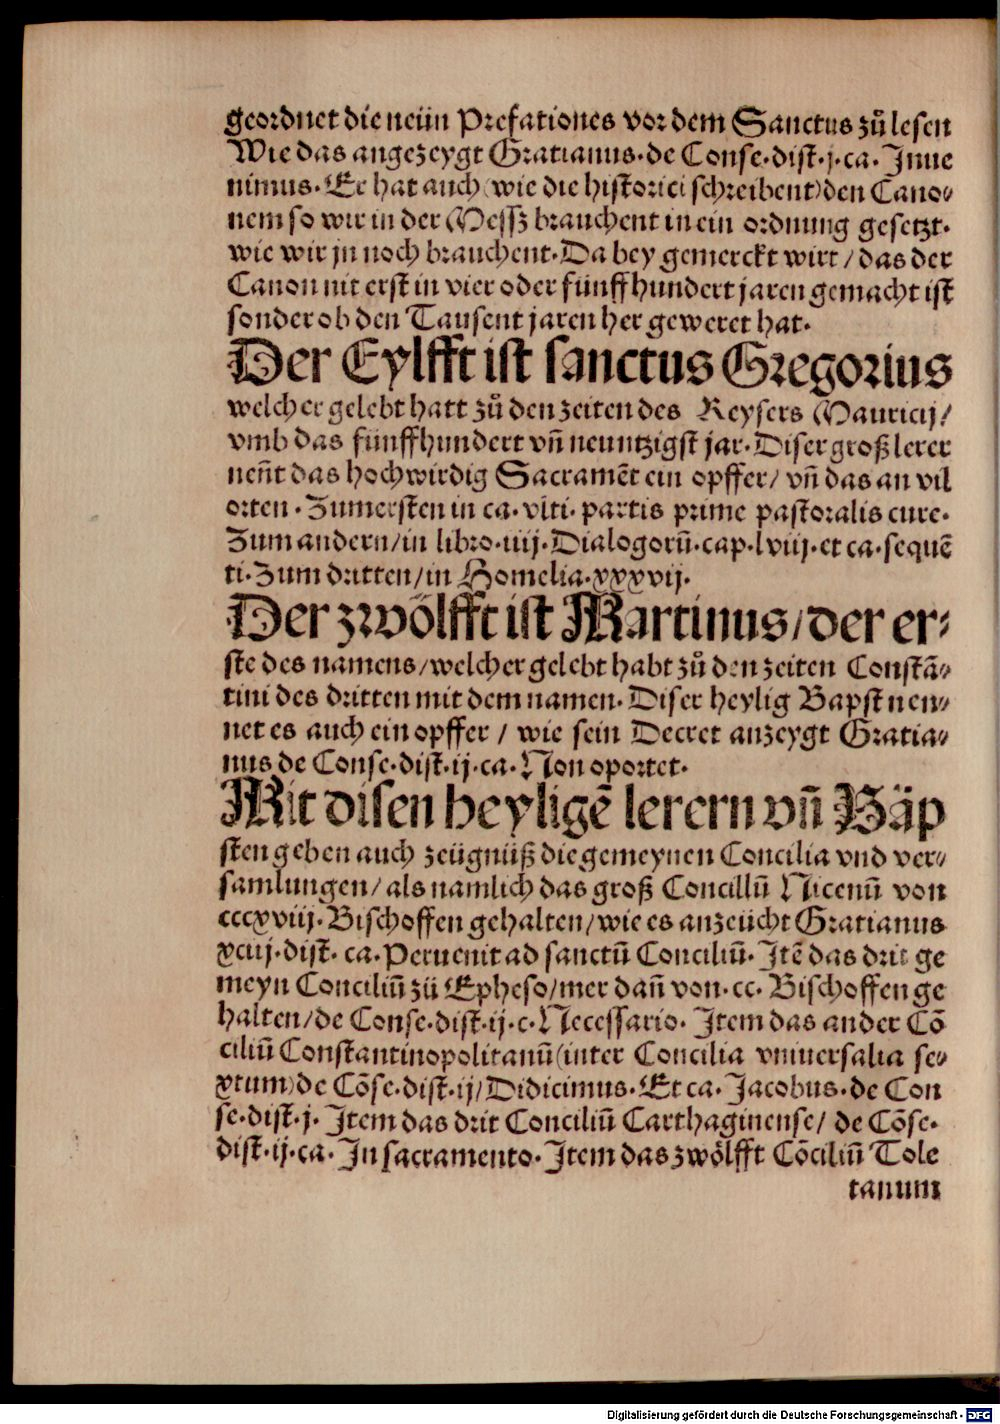 geordnet die neün Prefationes vor dem Sanctus zů lesen
Wie das angezeygt Gratianus·de Conse·dist·j·ca·Inue
nimus·Er hat auch (wie die historici schreibent) den Cano⸗
nem so wir in der Messz brauchent in ein ordnung gesetzt·
wie wir jn noch brauchent·Da bey gemerckt wirt / das der
Canon nit erst in vier oder fünffhundert jaren gemacht ist
sonder ob den Tausent jaren her geweret hat·
Der Eylfft ist sanctus Gregorius
welcher gelebt hatt zů den zeiten des Keysers Mauricij/
vmb das fünffhundert vñ neuntzigst jar·Diser groß lerer
neñt das hochwirdig Sacramēt ein opffer/ vñ das an vil
orten·Zumersten in ca·vlti·partis prime pastoralis cure·
Zum andern/in libro·iiij·Dialogorū·cap·lviij·et ca·sequē
ti·Zum dritten/in Homelia·xxxvij·
Der zwölfft ist Martinus/der er⸗
ste des namens/welcher gelebt habt zů den zeiten Constā⸗
tini des dritten mit dem namen·Diser heylig Bapst nen⸗
net es auch ein opffer / wie sein Decret anzeygt Gratia⸗
nus de Conse·dist·ij·ca·Non oportet·
Mit disen heyligē lerern vñ Bäp
sten geben auch zeügnüß die gemeynen Concilia vnd ver⸗
samlungen/als namlich das groß Concillū Nicenū von
cccxviij·Bischoffen gehalten/wie es anzeücht Gratianus
xciij·dist·ca·Peruenit ad sanctū Conciliū·Itē das drit ge
meyn Conciliū zů Epheso/mer dañ von·cc·Bischoffen ge
halten/de Conse·dist·ij·c·Necessario·Item das ander Cō
ciliū Constantinopolitanū (inter Concilia vniuersalia se⸗
xtum) de Cōse·dist·ij/Didicimus·Et ca·Jacobus·de Con
se·dist·j·Item das drit Conciliū Carthaginense/ de Cōse·
dist·ij·ca·In sacramento·Item das zwölfft Cōciliū Tole
tanum
Digitalisierung gefördert durch die Deutsche Forschungsgemeinschaft - DFG